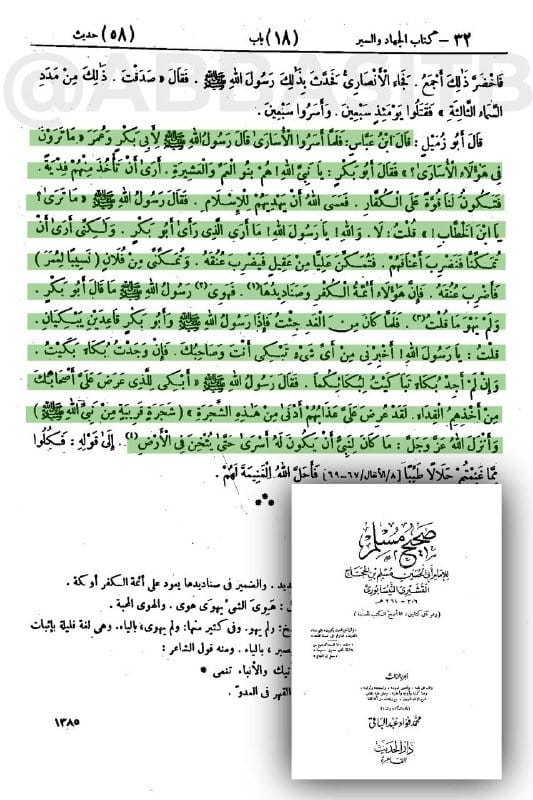 ٣٢ - كتاب الجهاد والسير (١٨) باب (٥٨) حديث
@ABBASITB
فَاخْضَرَّ ذَلِكَ أَجْمَعُ . فَجَاءَ الْأَنْصَارِيُّ فَحَدَّثَ بِذَلِكَ رَسُولَ اللهِ ﷺ . فَقَالَ « صَدَقْتَ . ذَلِكَ مِنْ مَدَدِ
السَّمَاءِ الثَّالِثَةِ » فَقَتَلُوا يَوْمَئِذٍ سَبْعِينَ . وَأَسَرُوا سَبْعِينَ .
قَالَ أَبُو زُمَيْلٍ : قَالَ ابْنُ عَبَّاسٍ : فَلَمَّا أَسَرُوا الْأُسَارَىٰ قَالَ رَسُولُ اللهِ ﷺ لِأَبِي بَكْرٍ وَعُمَرَ « مَا تَرَوْنَ
فِي هَٰؤُلَاءِ الْأُسَارَىٰ ؟ » فَقَالَ أَبُو بَكْرٍ : يَا نَبِيَّ اللهِ ! هُمْ بَنُو الْعَمِّ وَالْعَشِيرَةِ . أَرَىٰ أَنْ تَأْخُذَ مِنْهُمْ فِدْيَةً .
فَتَكُونُ لَنَا قُوَّةً عَلَى الْكُفَّارِ . فَعَسَى اللهُ أَنْ يَهْدِيَهُمْ لِلْإِسْلَامِ . فَقَالَ رَسُولُ اللهِ ﷺ « مَا تَرَىٰ ؟
يَا ابْنَ الْخَطَّابِ ! » قُلْتُ : لَا . وَاللهِ ! يَا رَسُولَ اللهِ ! مَا أَرَى الَّذِي رَأَىٰ أَبُو بَكْرٍ . وَلَكِنِّي أَرَىٰ أَنْ
تُمَكِّنَّا فَنَضْرِبَ أَعْنَاقَهُمْ . فَتُمَكِّنَ عَلِيًّا مِنْ عَقِيلٍ فَيَضْرِبَ عُنُقَهُ . وَتُمَكِّنِّي مِنْ فُلَانٍ ( نَسِيبًا لِعُمَرَ )
فَأَضْرِبَ عُنُقَهُ . فَإِنَّ هَٰؤُلَاءِ أَئِمَّةُ الْكُفْرِ وَصَنَادِيدُهَا(١) . فَهَوِيَ(٢) رَسُولُ اللهِ ﷺ مَا قَالَ أَبُو بَكْرٍ .
وَلَمْ يَهْوَ مَا قُلْتُ(٣) . فَلَمَّا كَانَ مِنَ الْغَدِ جِئْتُ فَإِذَا رَسُولُ اللهِ ﷺ وَأَبُو بَكْرٍ قَاعِدَيْنِ يَبْكِيَانِ .
قُلْتُ : يَا رَسُولَ اللهِ ! أَخْبِرْنِي مِنْ أَيِّ شَيْءٍ تَبْكِي أَنْتَ وَصَاحِبُكَ . فَإِنْ وَجَدْتُ بُكَاءً بَكَيْتُ .
وَإِنْ لَمْ أَجِدْ بُكَاءً تَبَاكَيْتُ لِبُكَائِكُمَا . فَقَالَ رَسُولُ اللهِ ﷺ « أَبْكِي لِلَّذِي عَرَضَ عَلَيَّ أَصْحَابُكَ
مِنْ أَخْذِهِمِ الْفِدَاءَ . لَقَدْ عُرِضَ عَلَيَّ عَذَابُهُمْ أَدْنَىٰ مِنْ هَٰذِهِ الشَّجَرَةِ » ( شَجَرَةٍ قَرِيبَةٍ مِنْ نَبِيِّ اللهِ ﷺ )
وَأَنْزَلَ اللهُ عَزَّ وَجَلَّ : مَا كَانَ لِنَبِيٍّ أَنْ يَكُونَ لَهُ أَسْرَىٰ حَتَّىٰ يُثْخِنَ فِي الْأَرْضِ(١) . إِلَىٰ قَوْلِهِ : فَكُلُوا
مِمَّا غَنِمْتُمْ حَلَالًا طَيِّبًا [٨/الأنفال/٦٧-٦٩] فَأَحَلَّ اللهُ الْغَنِيمَةَ لَهُمْ .
ديد . والضمير في صناديدها يعود على أئمة الكفر أو كة
ل : هَوِىَ الشىءَ يهوَى هوى . والهوى المحبة .
خ : ولم يهو . وفي كثير منها : ولم يهوى ، بالياء . وهى لغة قليلة بإثبات
صبر ، بالياء . ومنه قول الشاعر :
تيك والأنباء تنمى *
القهر فى العدوّ .
١٣٨٥
صحيح مسلم
للإمام أبي الحسين مسلم بن الحجاج
القشيري النيسابوري
٢٠٦ - ٢٦١ هـ
الجزء الثالث
محمد فؤاد عبد الباقي
دار الحديث
القاهرة